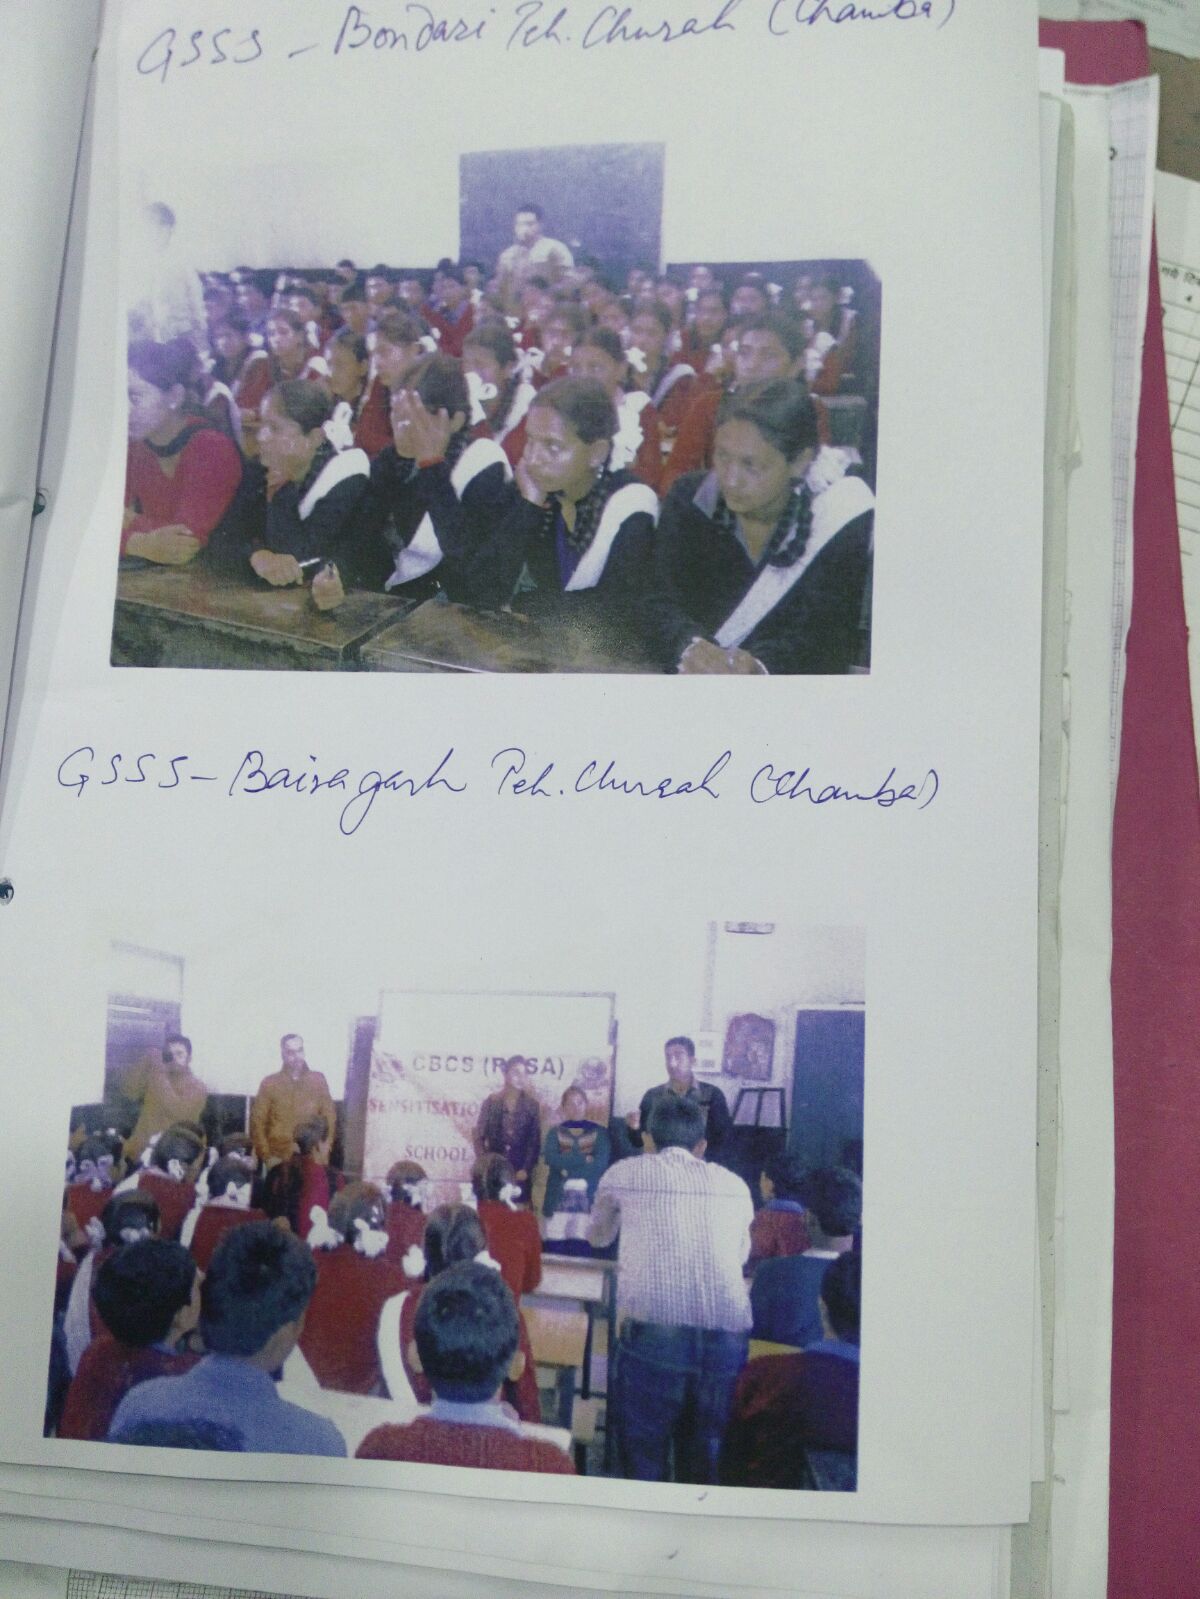 GSSS - Bondari Teh. Churah (Chamba)
GSSS - Bairagarh Teh. Churah (Chamba)
CBCS (RUSA)
SENSITISATIO
SCHOOL